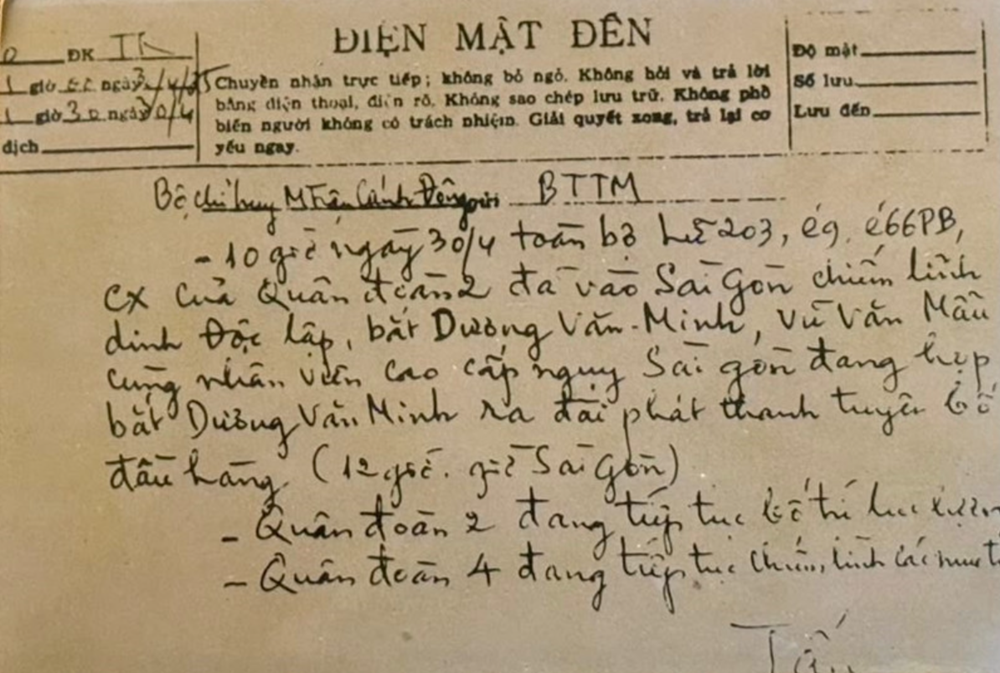 ĐIỆN MẬT ĐẾN
ĐK
giờ ngày
1 giờ 30 ngày 30/4
dịch
Chuyển nhận trực tiếp; không bỏ ngỏ. Không hỏi và trả lời
bằng điện thoại, điện rõ. Không sao chép lưu trữ. Không phổ
biến người không có trách nhiệm. Giải quyết xong, trả lại cơ
yếu ngay.
Độ mật
Số lưu
Lưu đến
Bộ chỉ huy M Trận Cánh Đông gửi BTTM
- 10 giờ ngày 30/4 toàn bộ Lữ 203, e9. e66PB,
CX của Quân đoàn 2 đã vào Sài Gòn chiếm lĩnh
dinh Độc lập, bắt Dương Văn-Minh, Vũ Văn Mẫu
cùng nhân viên cao cấp ngụy Sài gòn đang họp
bắt Dương Văn Minh ra đài phát thanh tuyên bố
đầu hàng. (12 giờ. giờ Sài Gòn)
- Quân đoàn 2 đang tiếp tục bố trí lực lượng
- Quân đoàn 4 đang tiếp tục chiếm lĩnh các mục
Tấn